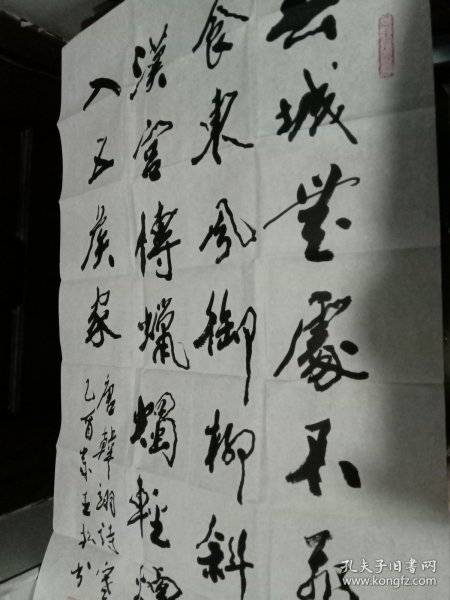 春城無處不飛
食東風御柳斜
漢宮傳蠟燭輕煙
入五侯家
唐韓翃詩寒
乙酉
孔夫子旧书网
www.kongfz.com